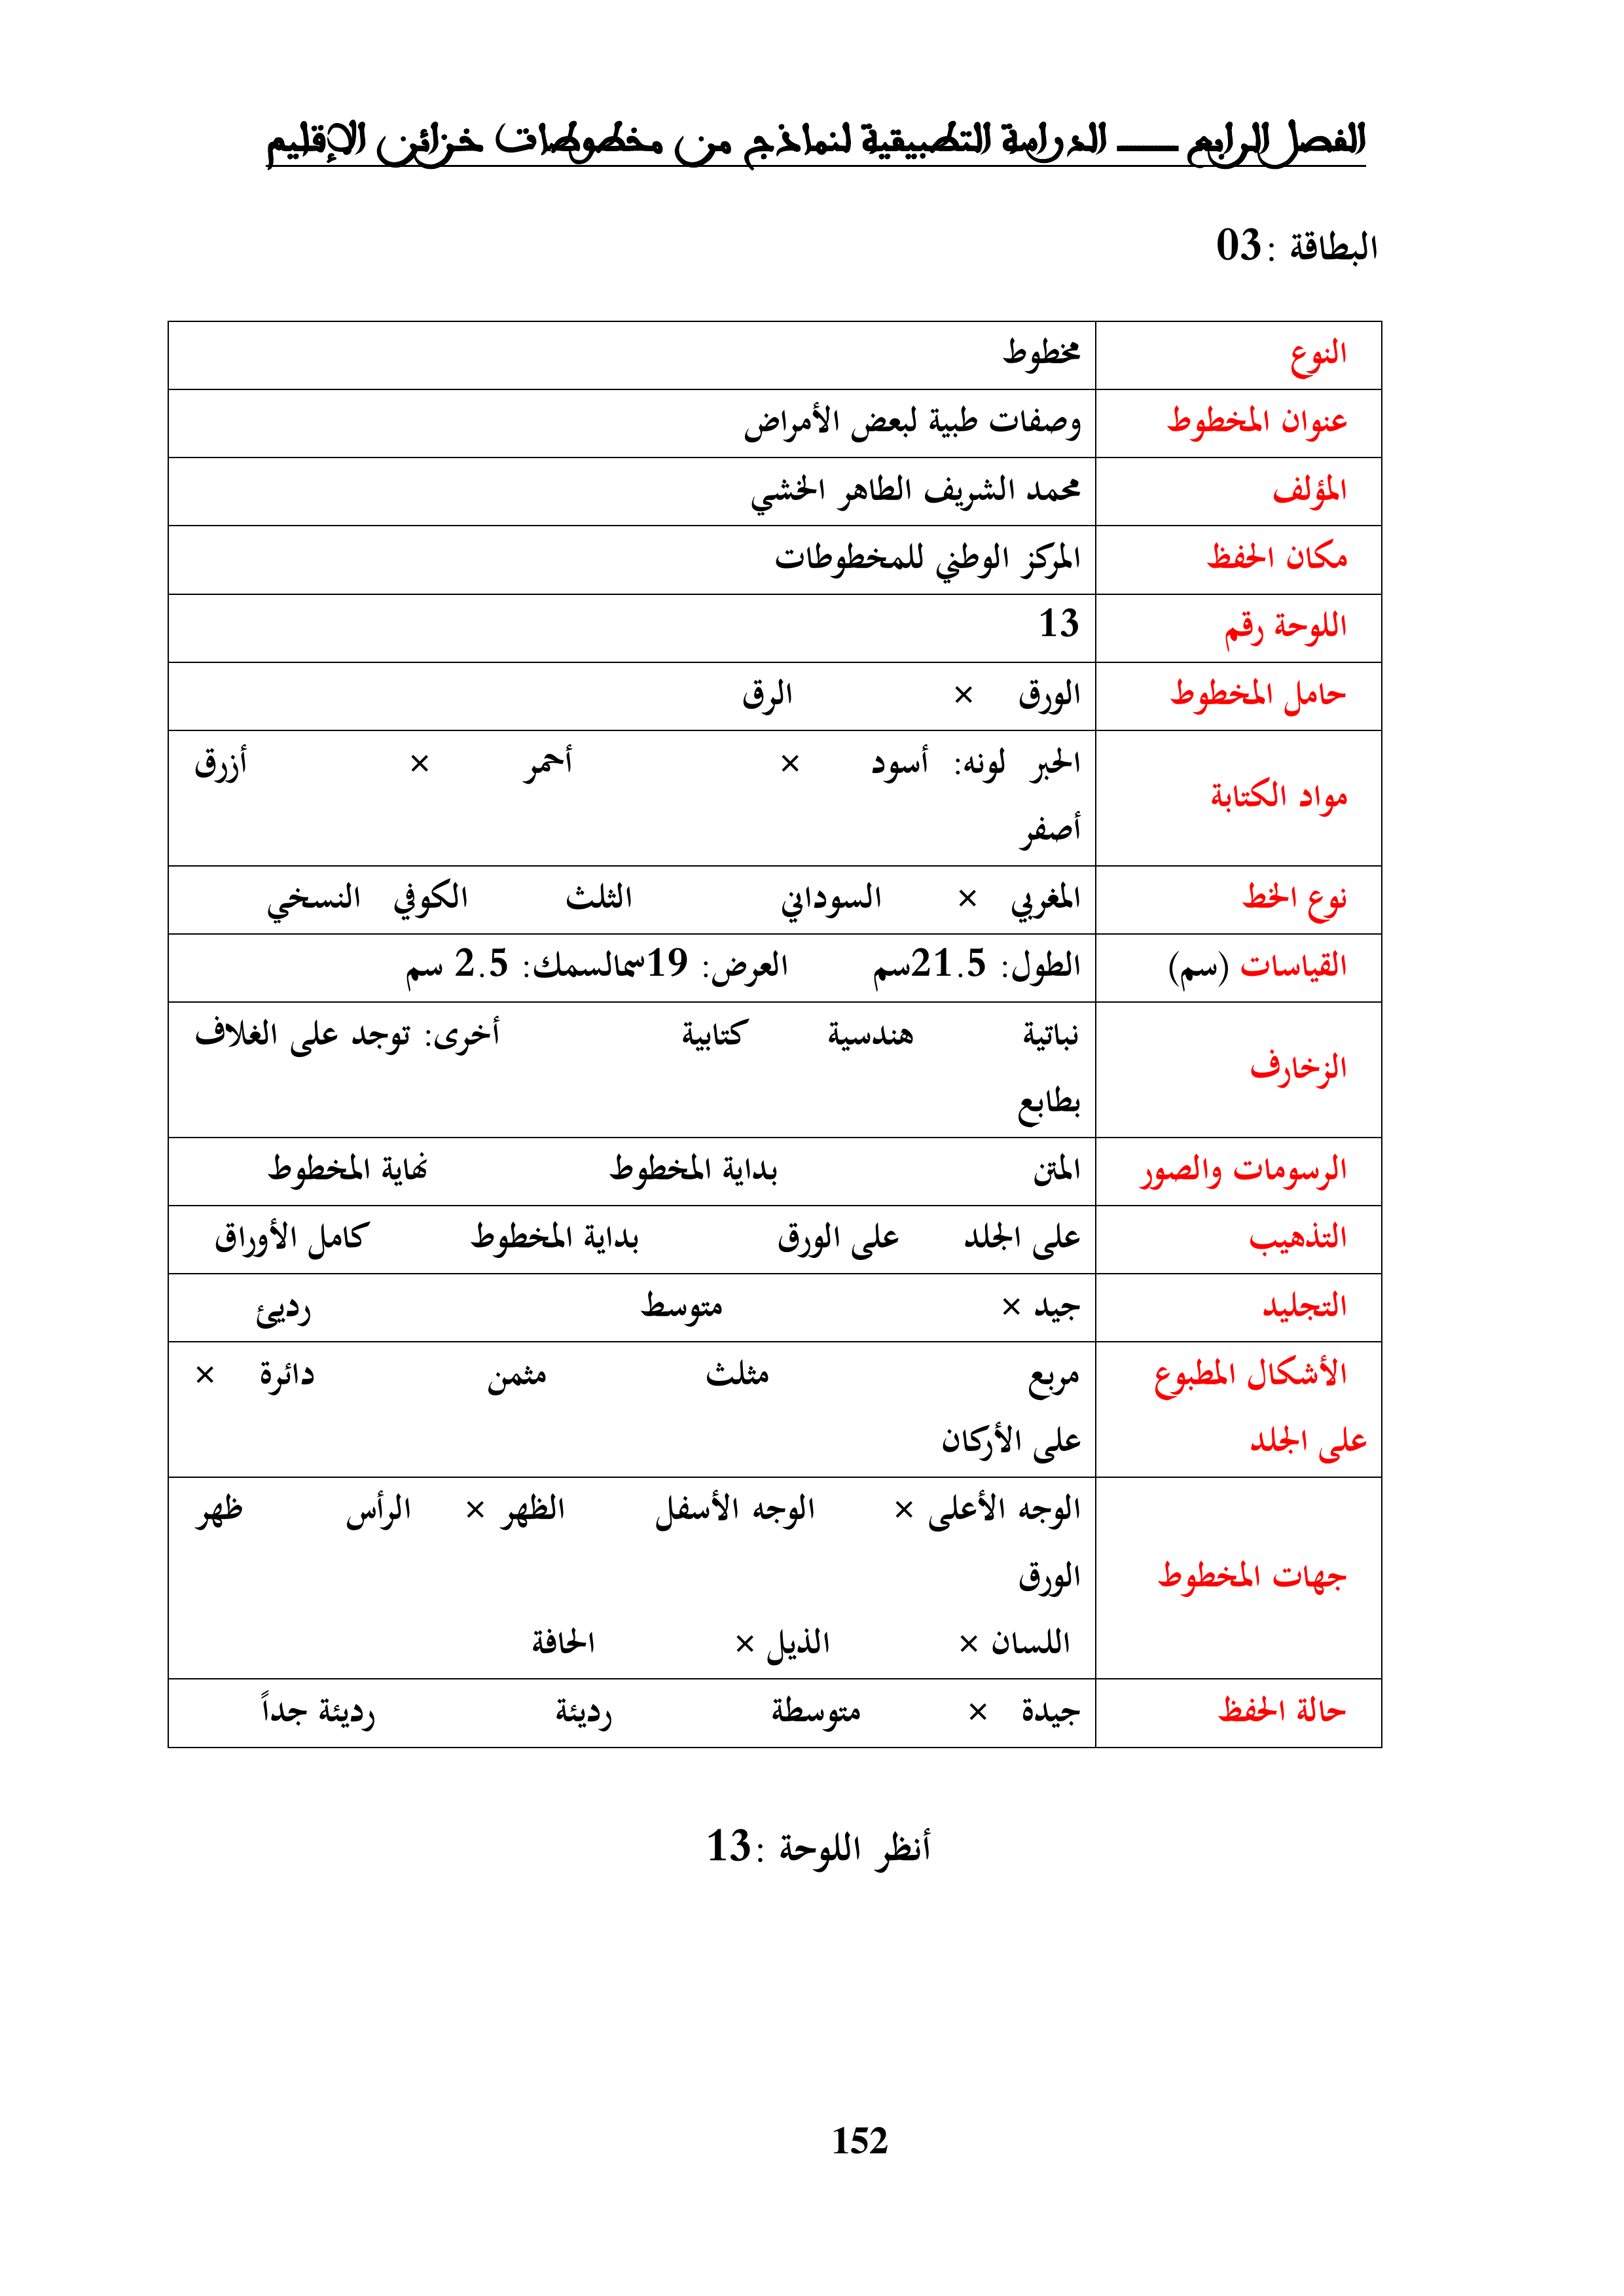 الفصل الرابع ــــــ الدراسة التطبيقية لنماذج من مخطوطات خزائن الإقليم
البطاقة :03
النوع مخطوط
عنوان المخطوط وصفات طبية لبعض الأمراض
المؤلف محمد الشريف الطاهر الخشي
مكان الحفظ المركز الوطني للمخطوطات
اللوحة رقم 13
حامل المخطوط الورق × الرق
مواد الكتابة الحبر لونه: أسود × أحمر × أزرق
أصفر
نوع الخط المغربي × السوداني الثلث الكوفي النسخي
القياسات (سم) الطول: 21.5سم العرض: 19سمالسمك: 2.5 سم
الزخارف نباتية هندسية كتابية أخرى: توجد على الغلاف
بطابع
الرسومات والصور المتن بداية المخطوط نهاية المخطوط
التذهيب على الجلد على الورق بداية المخطوط كامل الأوراق
التجليد جيد × متوسط رديئ
الأشكال المطبوع مربع مثلث مثمن دائرة ×
على الجلد على الأركان
جهات المخطوط الوجه الأعلى × الوجه الأسفل الظهر × الرأس ظهر
الورق
اللسان × الذيل × الحافة
حالة الحفظ جيدة × متوسطة رديئة رديئة جداً
أنظر اللوحة :13
152